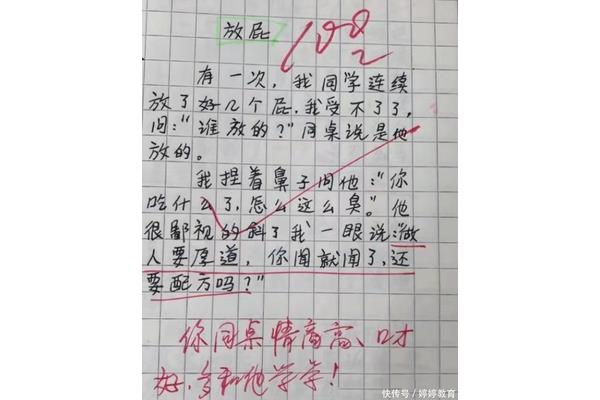 放屁
100
2
有一次，我同学连续
放了好几个屁.我受不了了，
问："谁放的？"同桌说是他
放的。
我捏着鼻子问他："你
吃什么了，怎么这么臭。"他
很鄙视的斜了我一眼说："做
人要厚道，你闻就闻了，还
要配方吗？"
你同桌情商高、口才
好.多和他学学！
快传号／婷婷教育